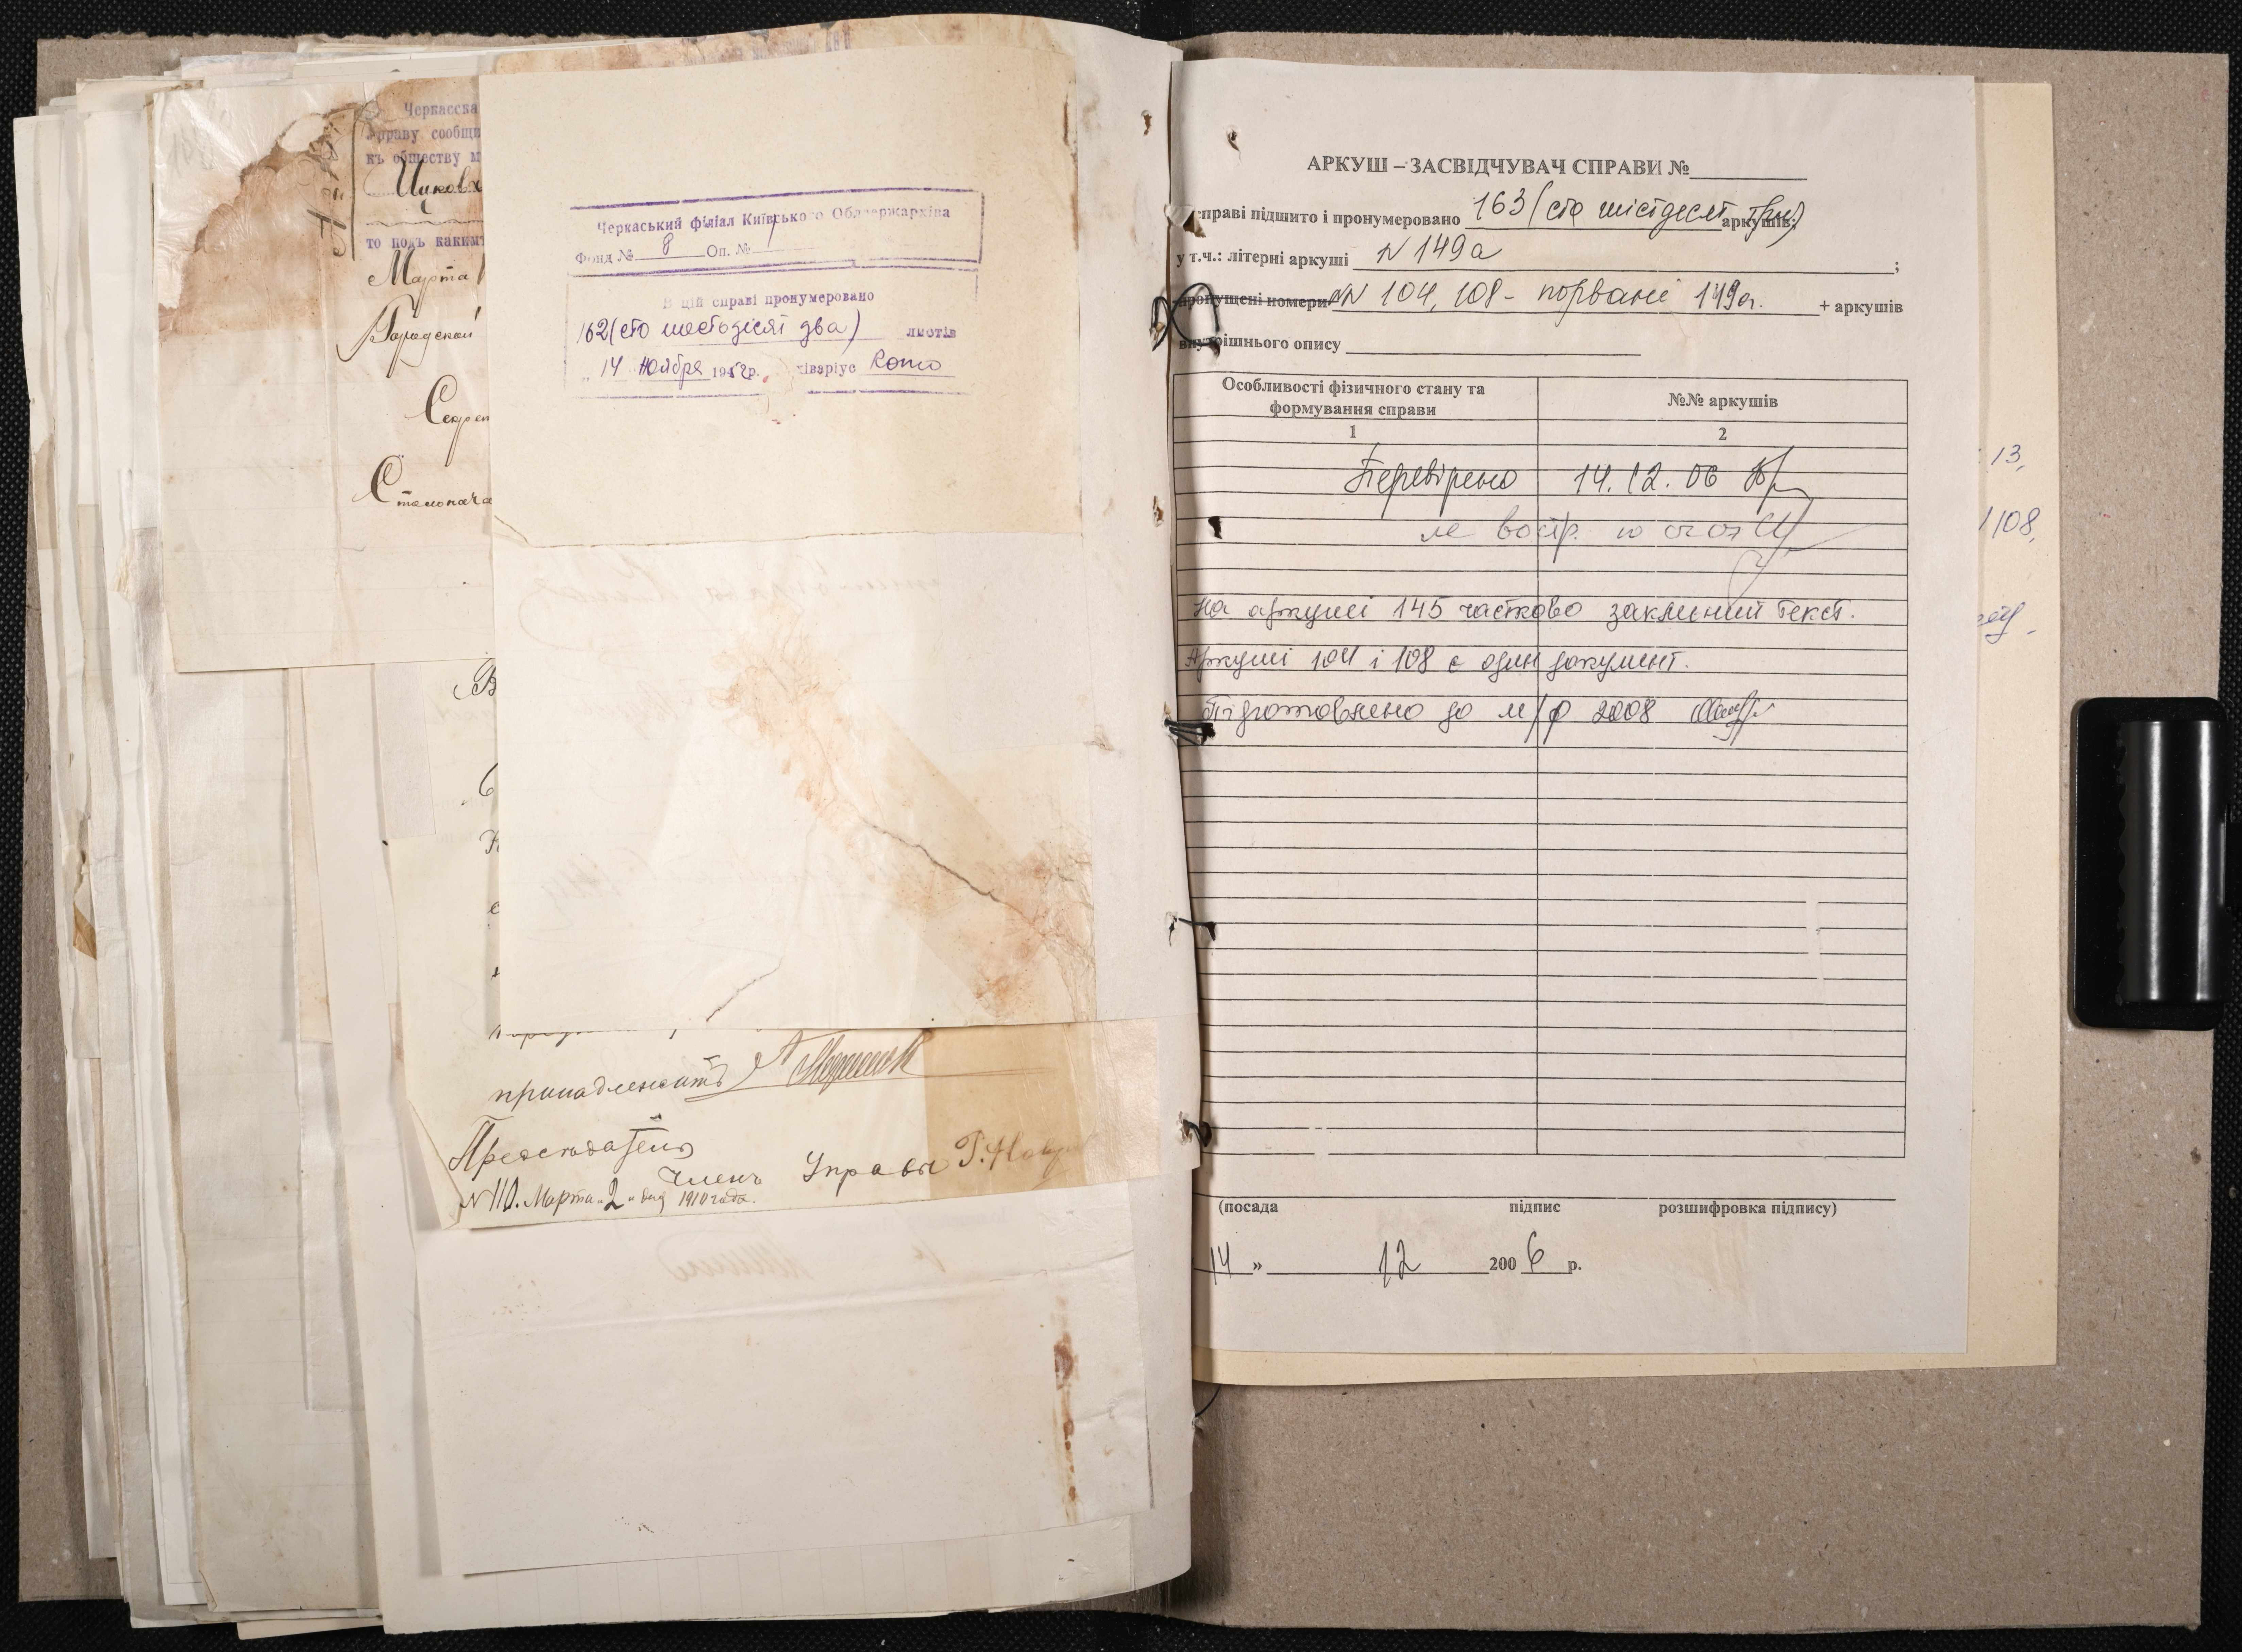 Черкасска
управу сообщи
къ обществу м
то подъ какимъ
Марта
Городской
Секрет
Столонача
Черкаський філіал Київського Облдержархіва
Фонд № 8 Оп. № 1
В цій справі пронумеровано
162 (сто шестодісят два) листів
„ 14 ноября 1952р. хіваріус
принадлежитъ
Председатель
Членъ Управы Г.
№ 110. Марта „2" дня 1910 года.
АРКУШ – ЗАСВІДЧУВАЧ СПРАВИ №
справі підшито і пронумеровано 163 (сто шістдесят три) аркушів;
у т.ч.: літерні аркуші N 149а ;
пропущені номери NN 104, 108 - порвані 149а. + аркушів
внутрішнього опису
Особливості фізичного стану та формування справи
№№ аркушів
1
2
Перевірено 14.12.06
На аркуші 145 частково заклеиний текст.
Аркуші 104 і 108 є один документ.
Підготовлено до м/ф 2008
(посада підпис розшифровка підпису)
14 » 12 2006 р.
13,
108,